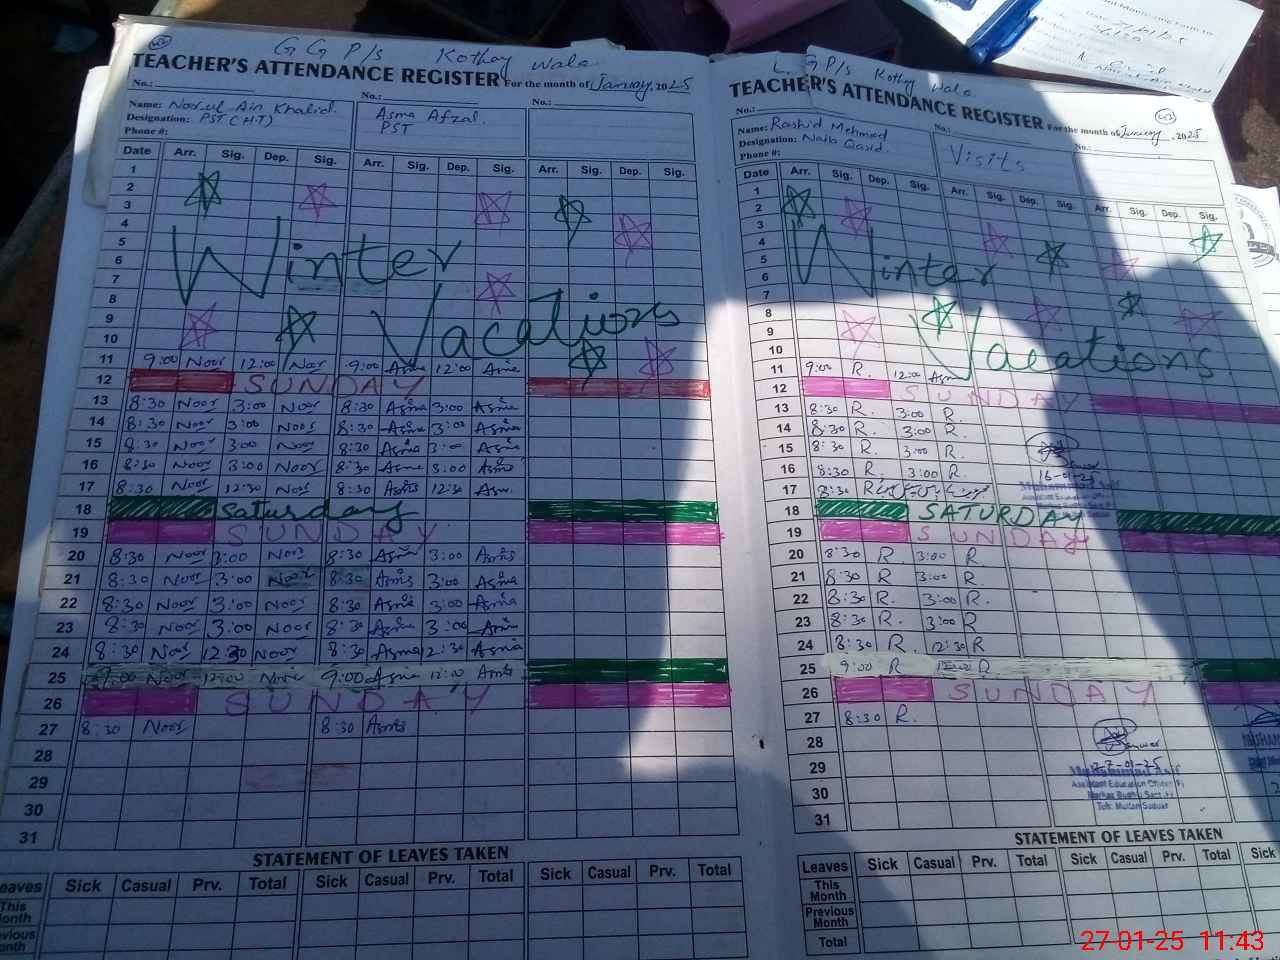 G G P/s Kothay Wala
TEACHER'S ATTENDANCE REGISTER For the month of January, 2025
No.: No.: No.:
Name: Noor ul Ain Khalid. Asma Afzal.
Designation: PST (H.T) PST
Phone #:
Date Arr. Sig. Dep. Sig. Arr. Sig. Dep. Sig. Arr. Sig. Dep. Sig.
1
2
3
4
5
6
7
8
9
10
Winter
Vacations
11 9:00 Noor 12:00 Noor 9:00 Asma 12:00 Asma
12 SUNDAY
13 8:30 Noor 3:00 Noor 8:30 Asma 3:00 Asma
14 8:30 Noor 3:00 Noor 8:30 Asma 3:00 Asma
15 8:30 Noor 3:00 Noor 8:30 Asma 3:00 Asma
16 8:30 Noor 3:00 Noor 8:30 Asma 3:00 Asma
17 8:30 Noor 12:30 Noor 8:30 Asma 12:30 Asma
18 Saturday
19 SUNDAY
20 8:30 Noor 3:00 Noor 8:30 Asma 3:00 Asma
21 8:30 Noor 3:00 Noor 8:30 Asma 3:00 Asma
22 8:30 Noor 3:00 Noor 8:30 Asma 3:00 Asma
23 8:30 Noor 3:00 Noor 8:30 Asma 3:00 Asma
24 8:30 Noor 12:30 Noor 8:30 Asma 12:30 Asma
25 9:00 Noor 12:00 Noor 9:00 Asma 12:00 Asma
26 SUNDAY
27 8:30 Noor 8:30 Asma
28
29
30
31
STATEMENT OF LEAVES TAKEN
Leaves Sick Casual Prv. Total Sick Casual Prv. Total Sick Casual Prv. Total
This Month
Previous Month
G P/s Kothay Wala
TEACHER'S ATTENDANCE REGISTER For the month of January, 2025
No.: No.: No.:
Name: Rashid Mehmod Visits
Designation: Naib Qasid.
Phone #:
Date Arr. Sig. Dep. Sig. Arr. Sig. Dep. Sig. Arr. Sig. Dep. Sig.
1
2
3
4
5
6
7
8
9
10
Winter
Vacations.
11 9:00 R. 12:00
12 SUNDAY
13 8:30 R. 3:00 R.
14 8:30 R. 3:00 R.
15 8:30 R. 3:00 R.
16 8:30 R. 3:00 R.
17 8:30 R
18 SATURDAY
19 SUNDAY
20 8:30 R. 3:00 R.
21 8:30 R 3:00 R.
22 8:30 R. 3:00 R.
23 8:30 R. 3:00 R
24 8:30 R. 12:30 R
25 9:00 R 12:00 R
26 SUNDAY
27 8:30 R.
27-01-25
Assistant Education Officer
28
29
30
31
STATEMENT OF LEAVES TAKEN
Leaves Sick Casual Prv. Total Sick Casual Prv. Total Sick
This Month
Previous Month
Total
27-01-25 11:43